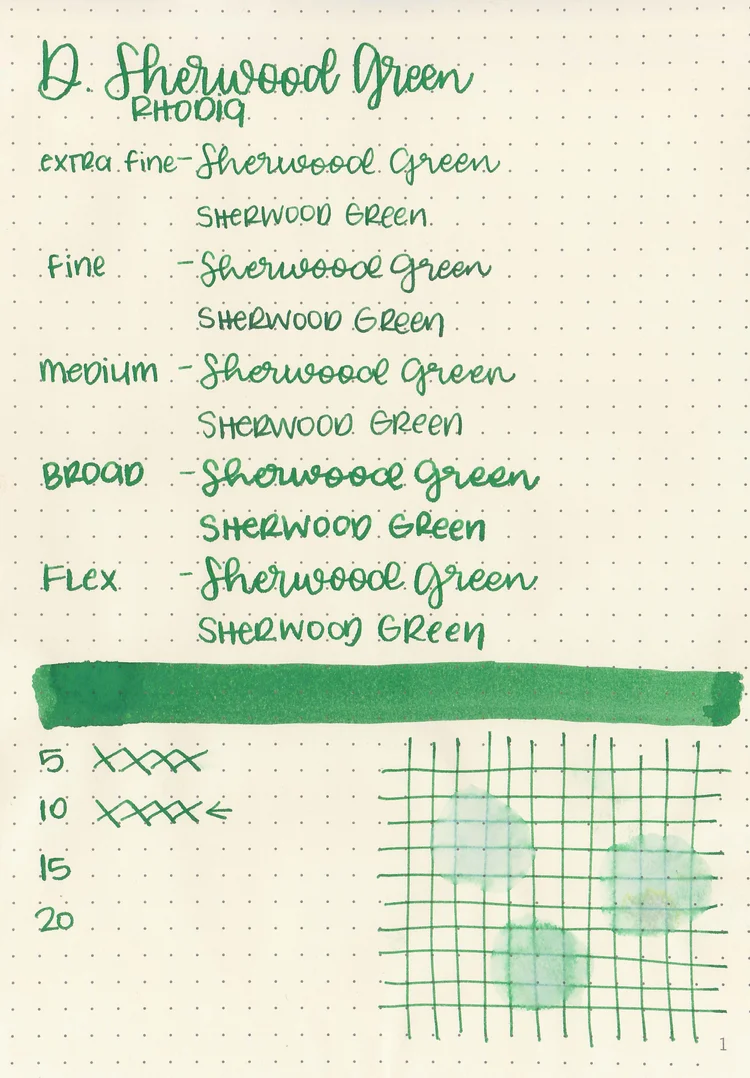 D. Sherwood Green
RHODIA
extra fine - Sherwood Green
SHERWOOD GReen
fine - Sherwood Green
SHERWOOD GReen
medium - Sherwood Green
SHERWOOD GReen
BROAD - Sherwood Green
SHERWOOD GReen
FLex - Sherwood Green
SHERWOOD GReen
5 XXXX
10 XXXX ←
15
20
1